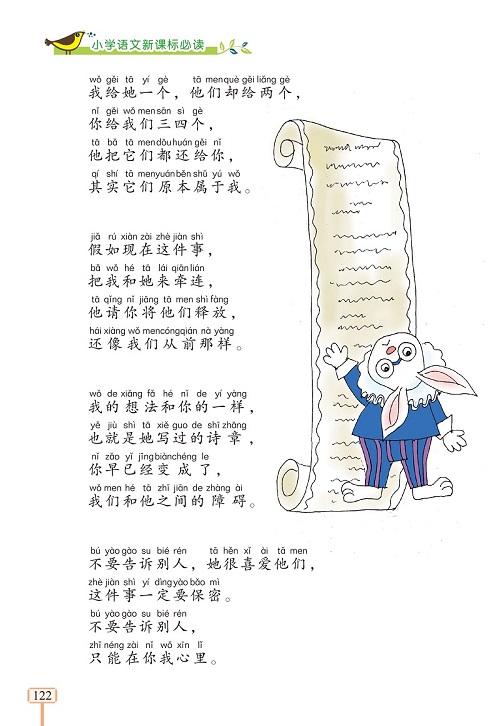 小学语文新课标必读
wǒ gěi tā yí gè tā men què gěi liǎng gè
我给她一个，他们却给两个，
nǐ gěi wǒ men sān sì gè
你给我们三四个，
tā bǎ tā men dōu huán gěi nǐ
他把它们都还给你，
qí shí tā men yuán běn shǔ yú wǒ
其实它们原本属于我。
jiǎ rú xiàn zài zhè jiàn shì
假如现在这件事，
bǎ wǒ hé tā lái qiān lián
把我和她来牵连，
tā qǐng nǐ jiāng tā men shì fàng
他请你将他们释放，
hái xiàng wǒ men cóng qián nà yàng
还像我们从前那样。
wǒ de xiǎng fǎ hé nǐ de yí yàng
我的想法和你的一样，
yě jiù shì tā xiě guo de shī zhāng
也就是她写过的诗章，
nǐ zǎo yǐ jīng biàn chéng le
你早已经变成了，
wǒ men hé tā zhī jiān de zhàng ài
我们和他之间的障碍。
bú yào gào su bié rén tā hěn xǐ ài tā men
不要告诉别人，她很喜爱他们，
zhè jiàn shì yí dìng yào bǎo mì
这件事一定要保密。
bú yào gào su bié rén
不要告诉别人，
zhǐ néng zài nǐ wǒ xīn lǐ
只能在你我心里。
122